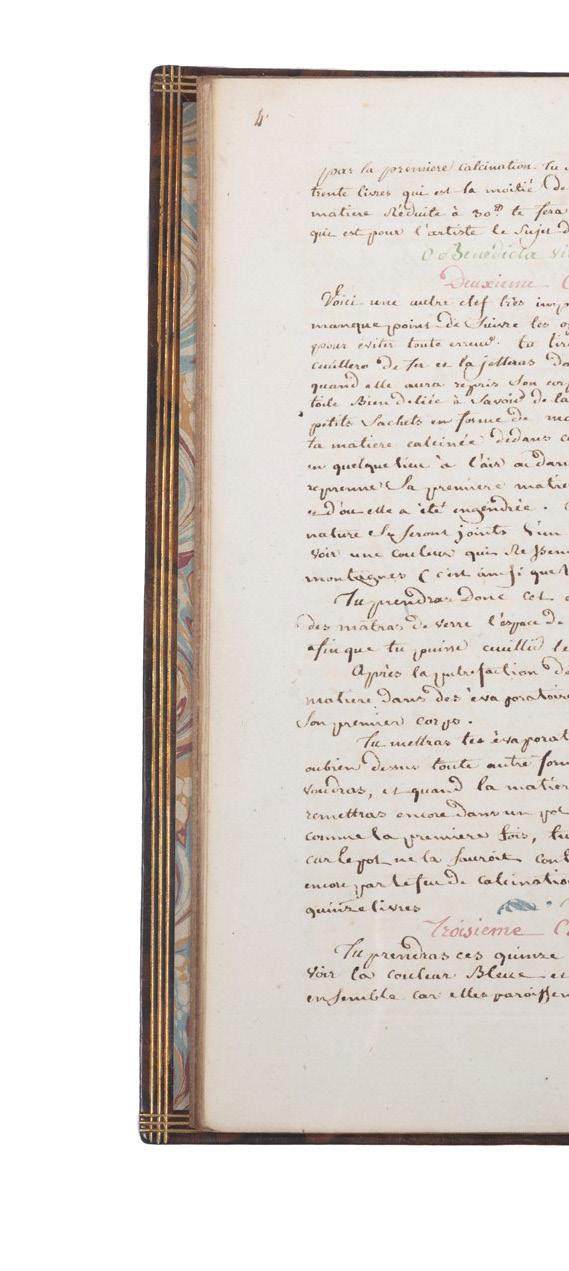 4
par la premiere calcination. Tu
trente livres qui est la moitié de
matiere Réduite à 30 te fera
qui est pour l'artiste le Sujet
O Benedicta
Deuxieme
Voici une autre clef très
manque point de Suivre les
pour éviter toute erreur. ta
cuillero de fer et la jetteras
quand elle aura repris Son
toile Bien deliée à Savoir de la
petits Sachets en forme de
ta matiere calcinée dedans
en quelque lieu à l'air
reprenne Sa premiere
et d'ou elle a été engendrée.
nature Sy Seront joints l'un
voir une couleur qui Re
montagnes (c'est ainsi que
Tu prendras Donc cet
des matras de verre l'espace de
afin que tu puisse
Après la putrefaction de
matiere dans des évaporatoire
Son premier corps.
Tu mettras tes
oubien dessus toute autre
voudras, et quand la
remettras encore dans un pot
comme la premiere fois,
car le pot ne la Sauroit
encore par le feu de calcination
quinze livres
Troisieme
Tu prendras ces quinze
voir la couleur Bleue et
ensemble car elles